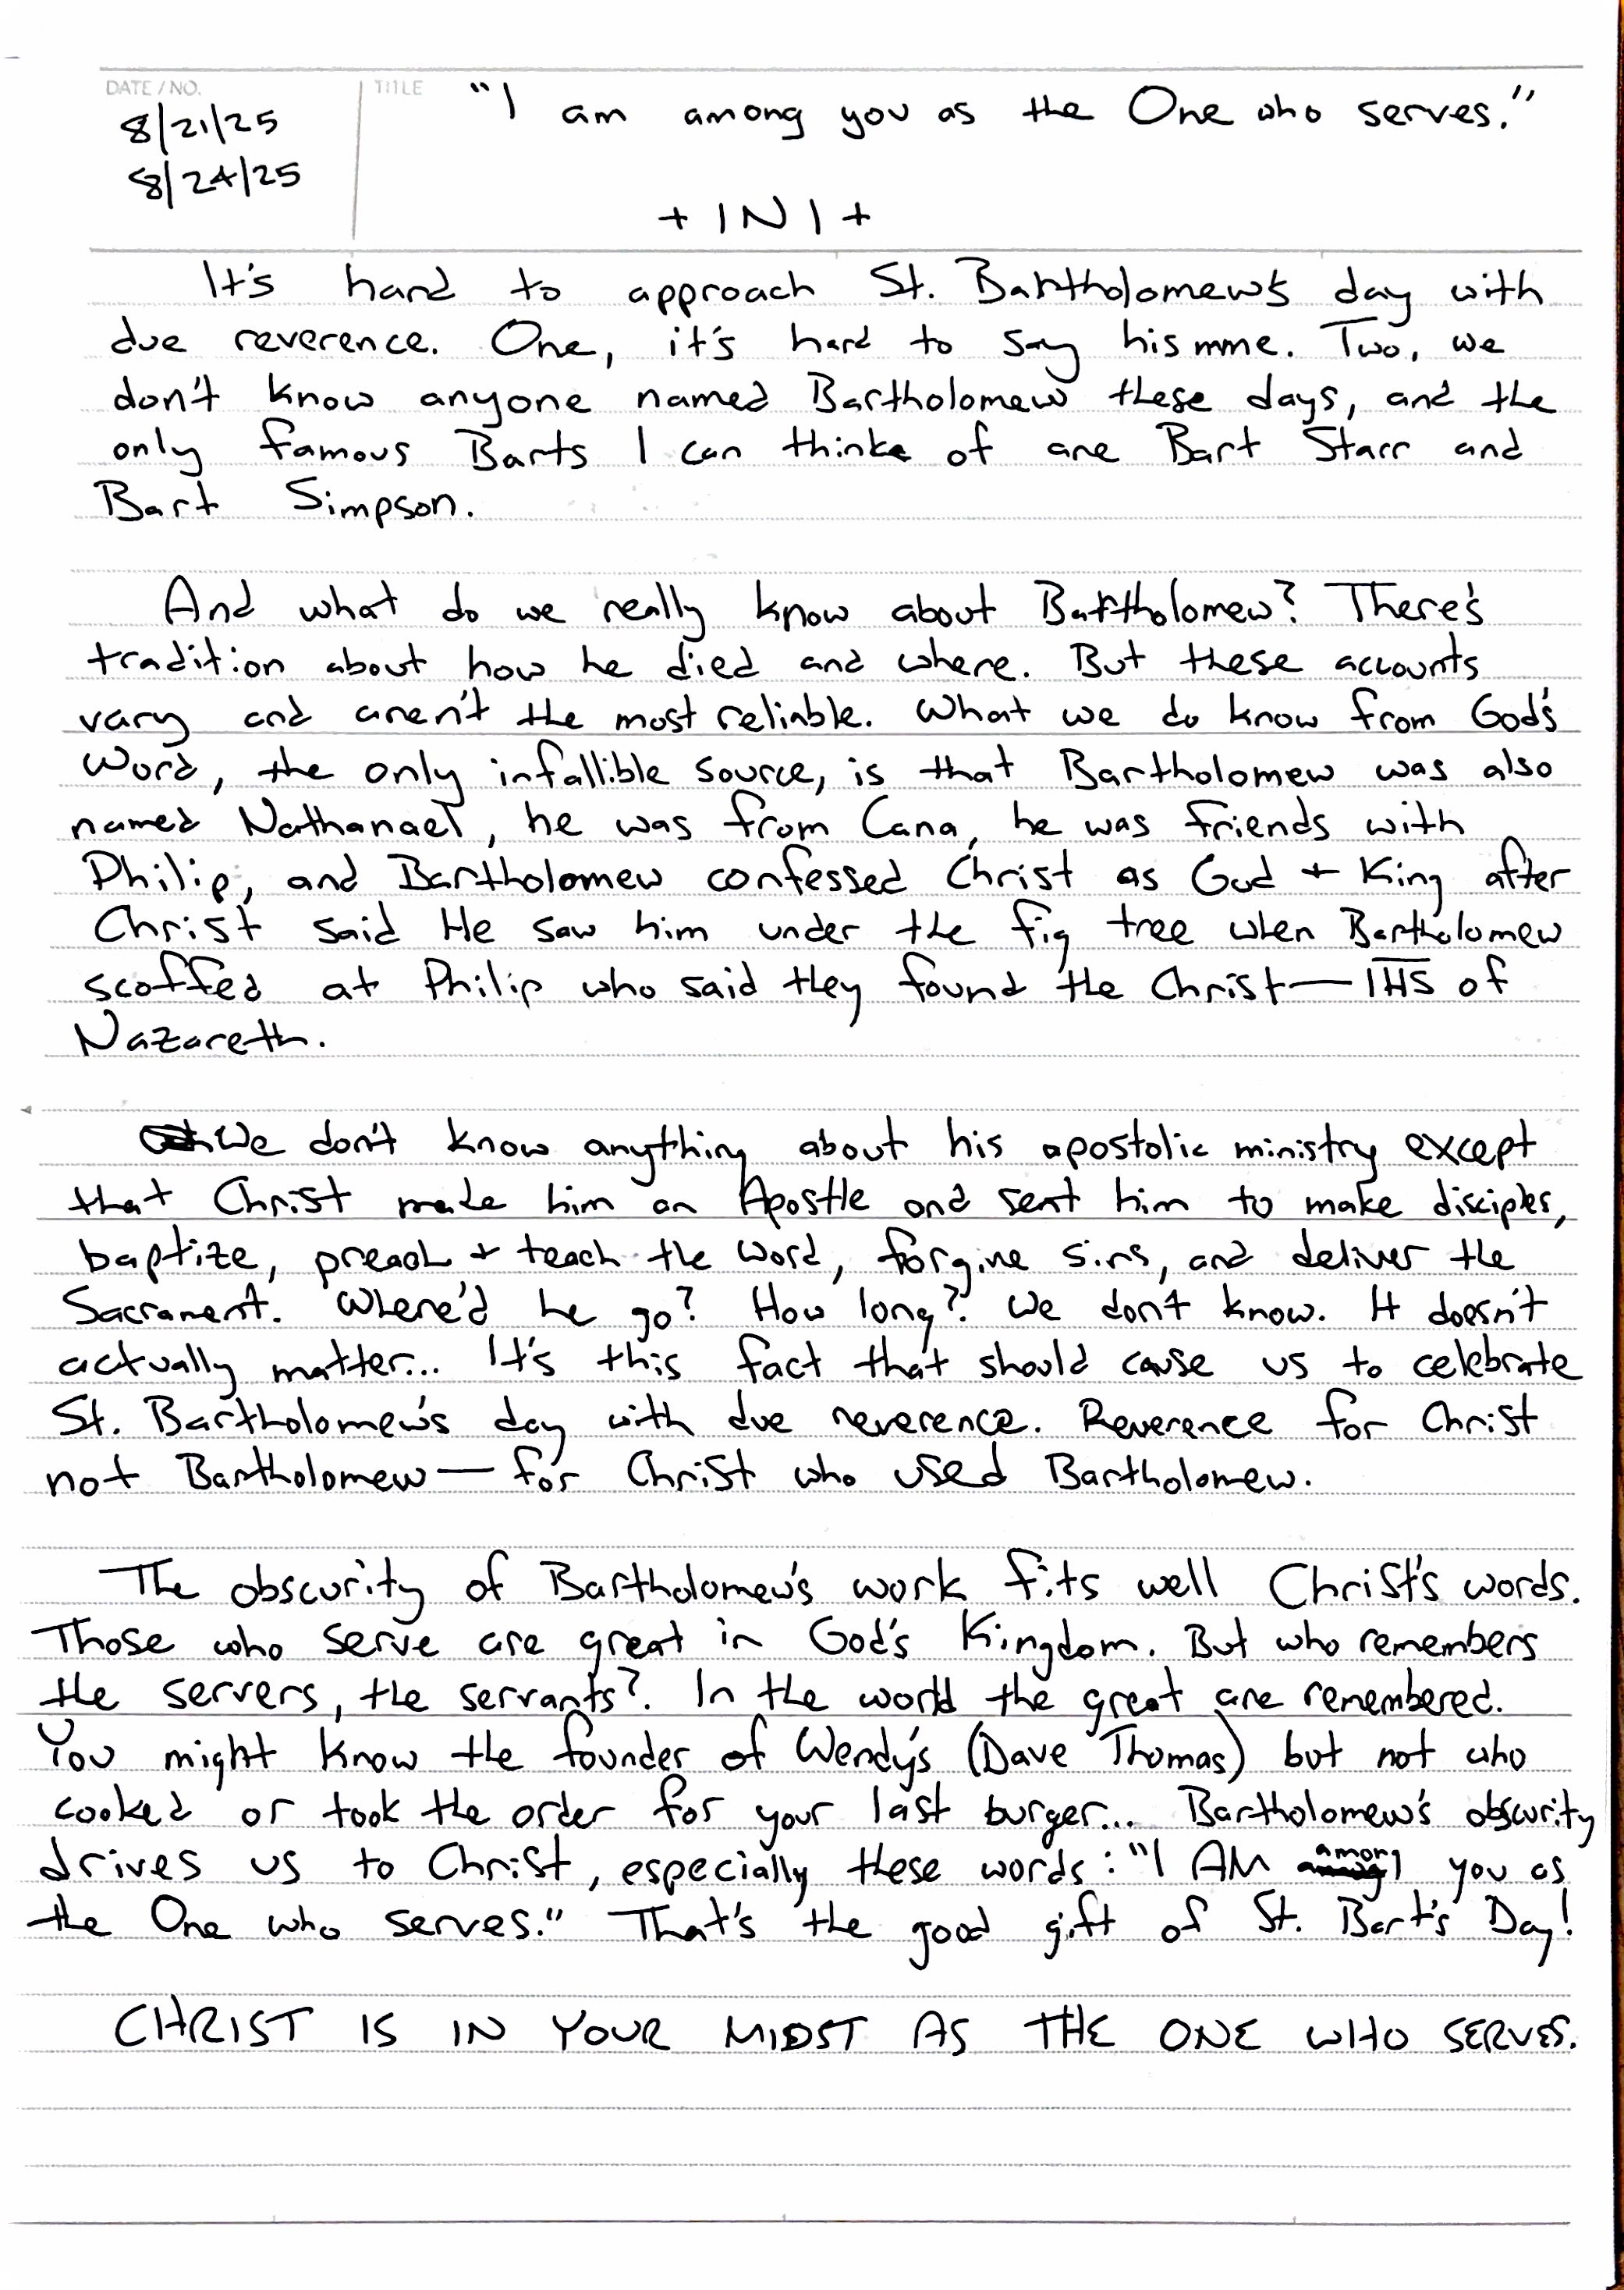 DATE / NO.
TITLE
8/21/25
8/24/25
"I am among you as the One who serves."
+ INI +
It's hard to approach St. Bartholomew's day with
due reverence. One, it's hard to say his mme. Two, we
don't know anyone named Bartholomew these days, and the
only famous Barts I can think of are Bart Starr and
Bart Simpson.
And what do we really know about Bartholomew? There's
tradition about how he died and where. But these accounts
vary and aren't the most reliable. What we do know from God's
Word, the only infallible source, is that Bartholomew was also
named Nathanael, he was from Cana, he was friends with
Philip, and Bartholomew confessed Christ as God + King after
Christ said He saw him under the fig tree when Bartholomew
scoffed at Philip who said they found the Christ—IHS of
Nazareth.
We don't know anything about his apostolic ministry except
that Christ made him an Apostle and sent him to make disciples,
baptize, preach + teach the Word, forgive sins, and deliver the
Sacrament. Where'd he go? How long? We don't know. It doesn't
actually matter... It's this fact that should cause us to celebrate
St. Bartholomew's day with due reverence. Reverence for Christ
not Bartholomew—for Christ who used Bartholomew.
The obscurity of Bartholomew's work fits well Christ's words.
Those who serve are great in God's Kingdom. But who remembers
the servers, the servants? In the world the great are remembered.
You might know the founder of Wendy's (Dave Thomas) but not who
cooked or took the order for your last burger... Bartholomew's obscurity
drives us to Christ, especially these words: "I AM among you as
the One who serves." That's the good gift of St. Bart's Day!
CHRIST IS IN YOUR MIDST AS THE ONE WHO SERVES.